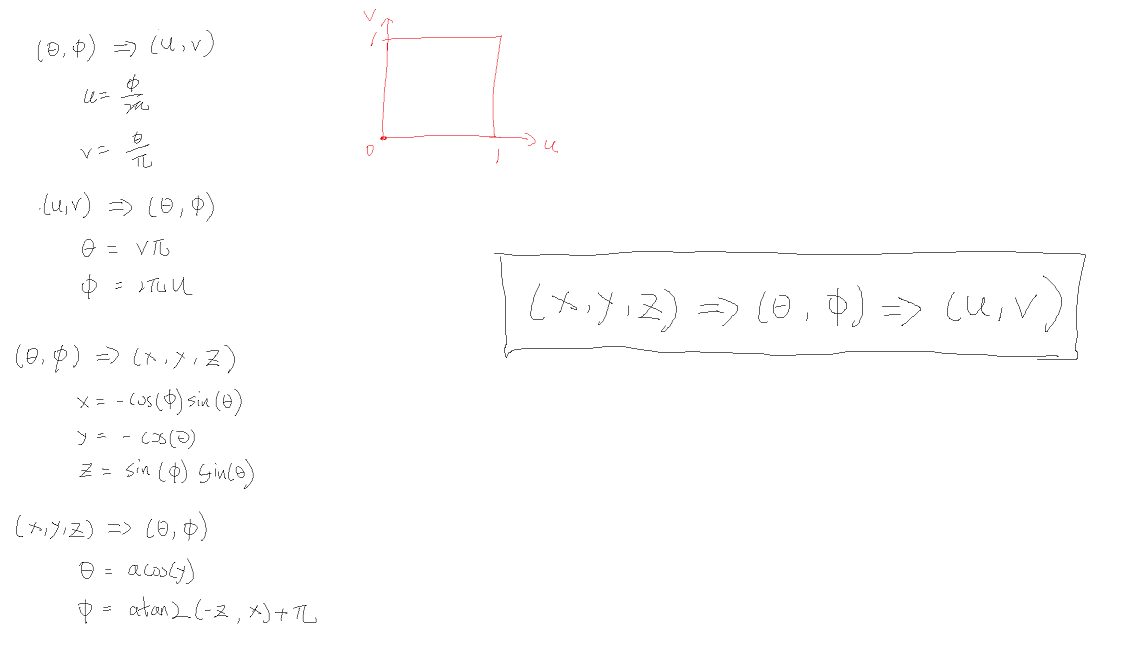 (θ, ϕ) ⇒ (u, v)
u = ϕ/2π
v = θ/π
(u, v) ⇒ (θ, ϕ)
θ = vπ
ϕ = 2πu
(θ, ϕ) ⇒ (x, y, z)
x = -cos(ϕ) sin(θ)
y = -cos(θ)
z = sin(ϕ) sin(θ)
(x, y, z) ⇒ (θ, ϕ)
θ = acos(y)
ϕ = atan2(-z, x) + π
v
1
0
1
u
(x, y, z) ⇒ (θ, ϕ) ⇒ (u, v)